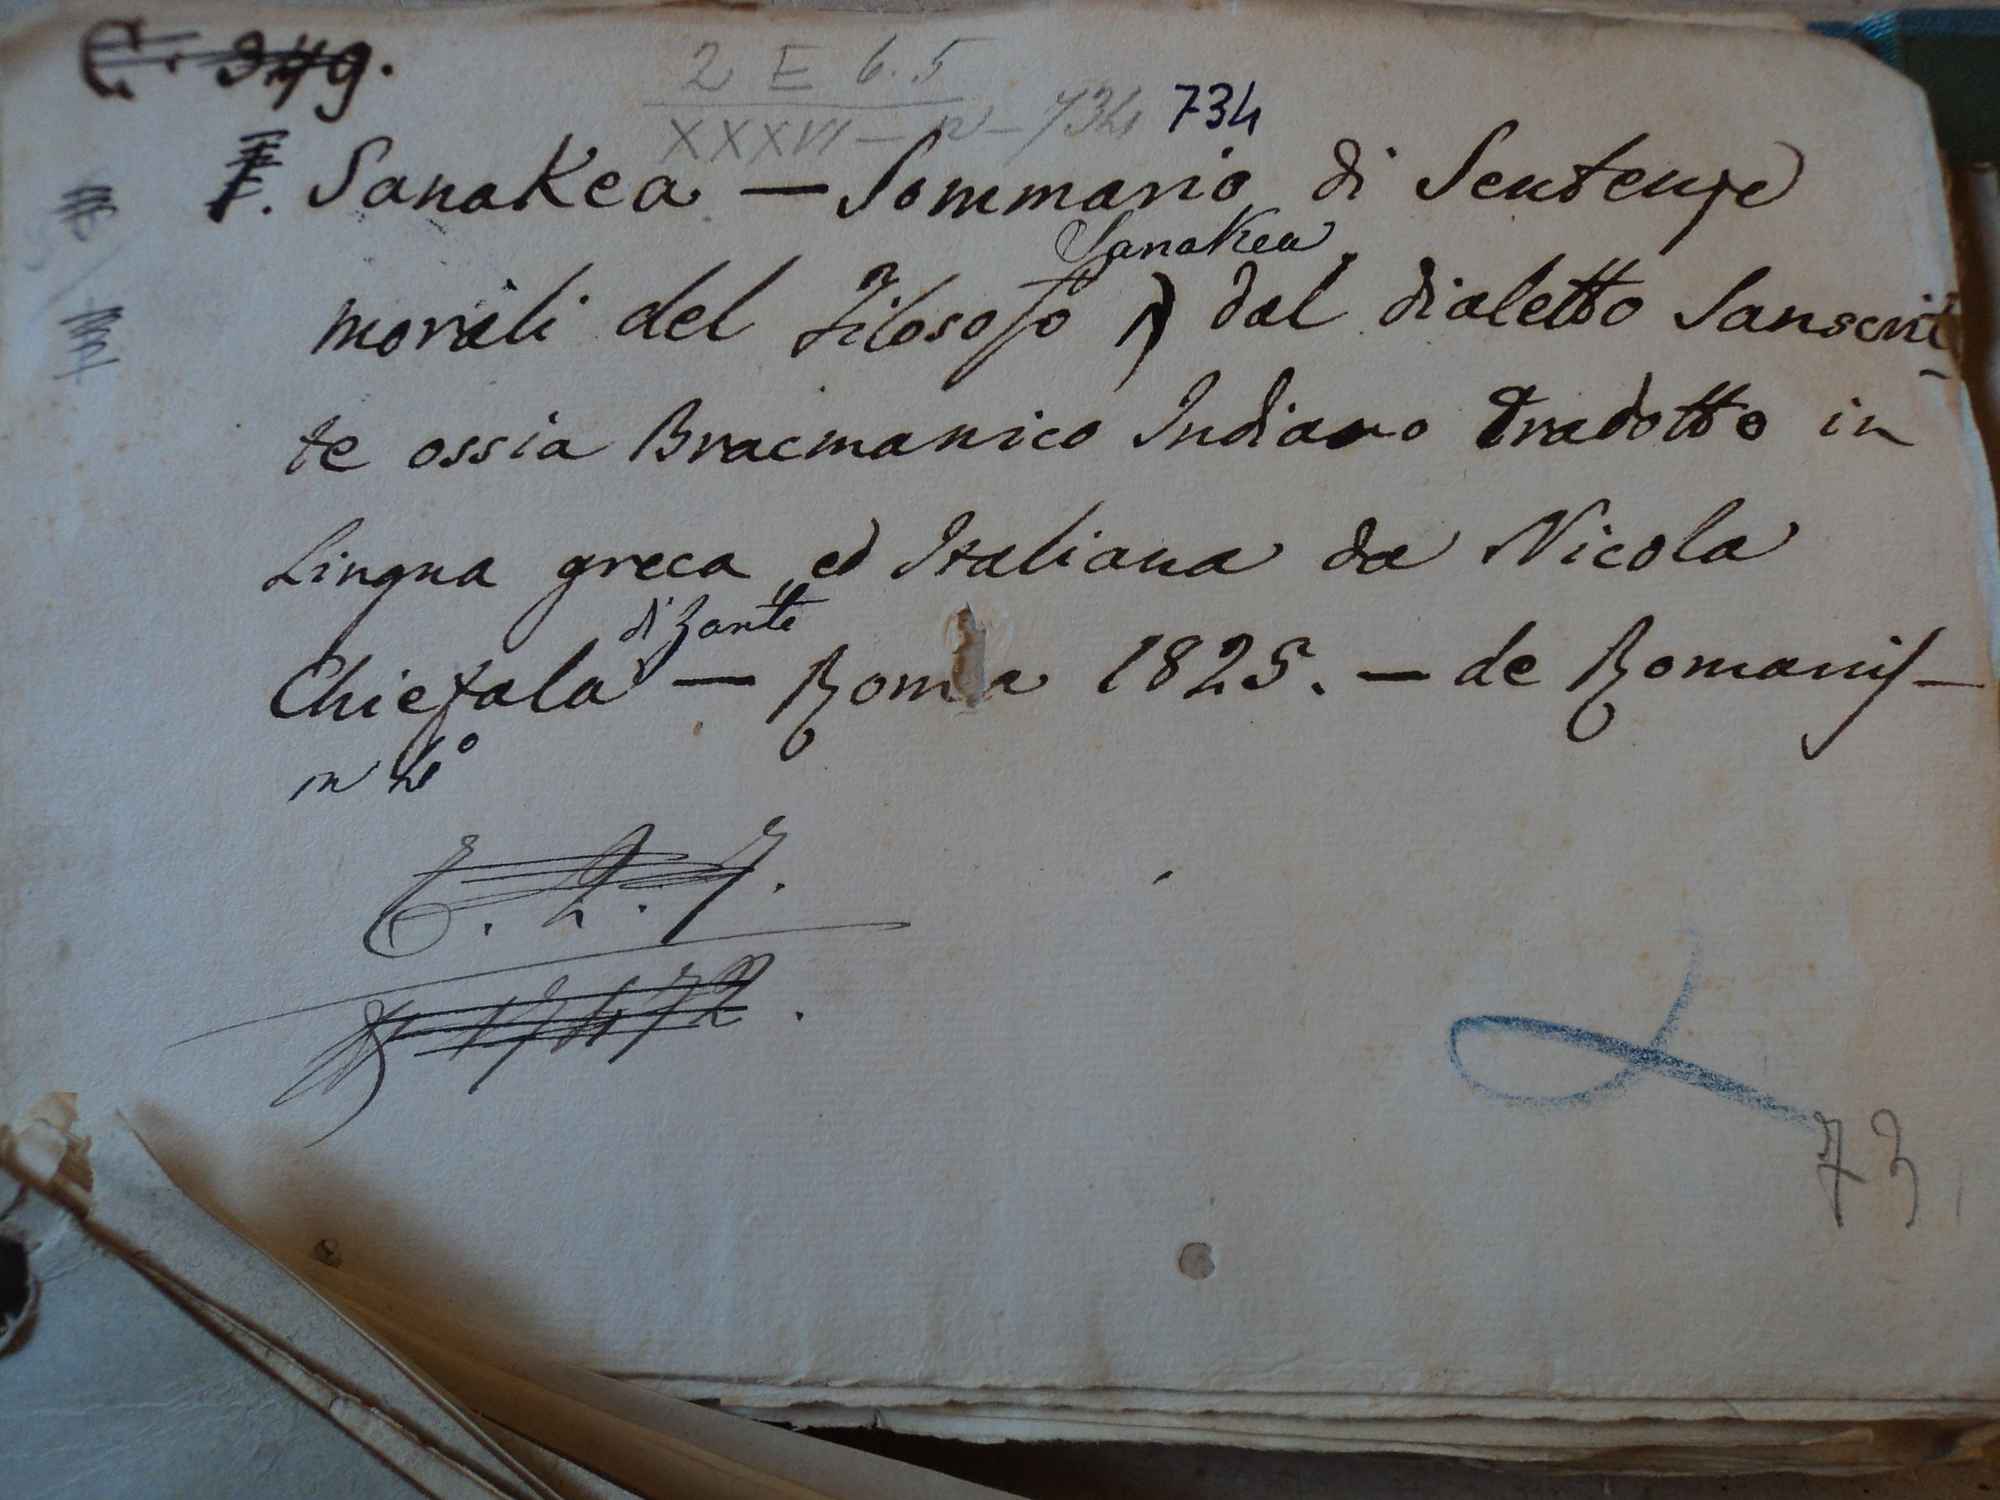 C. 349.
2 E 6.5
XXXVI — 734 734
Sanakea — Sommario di Sentenze
Sanakea
morali del Filosofo dal dialetto Sanscrit-
te ossia Bracmanico Indiano Tradotto in
Lingua greca ed Italiana da Nicola
di Zante
Chiefala — Roma 1825. — de Romanis —
in 4°
17472.
73